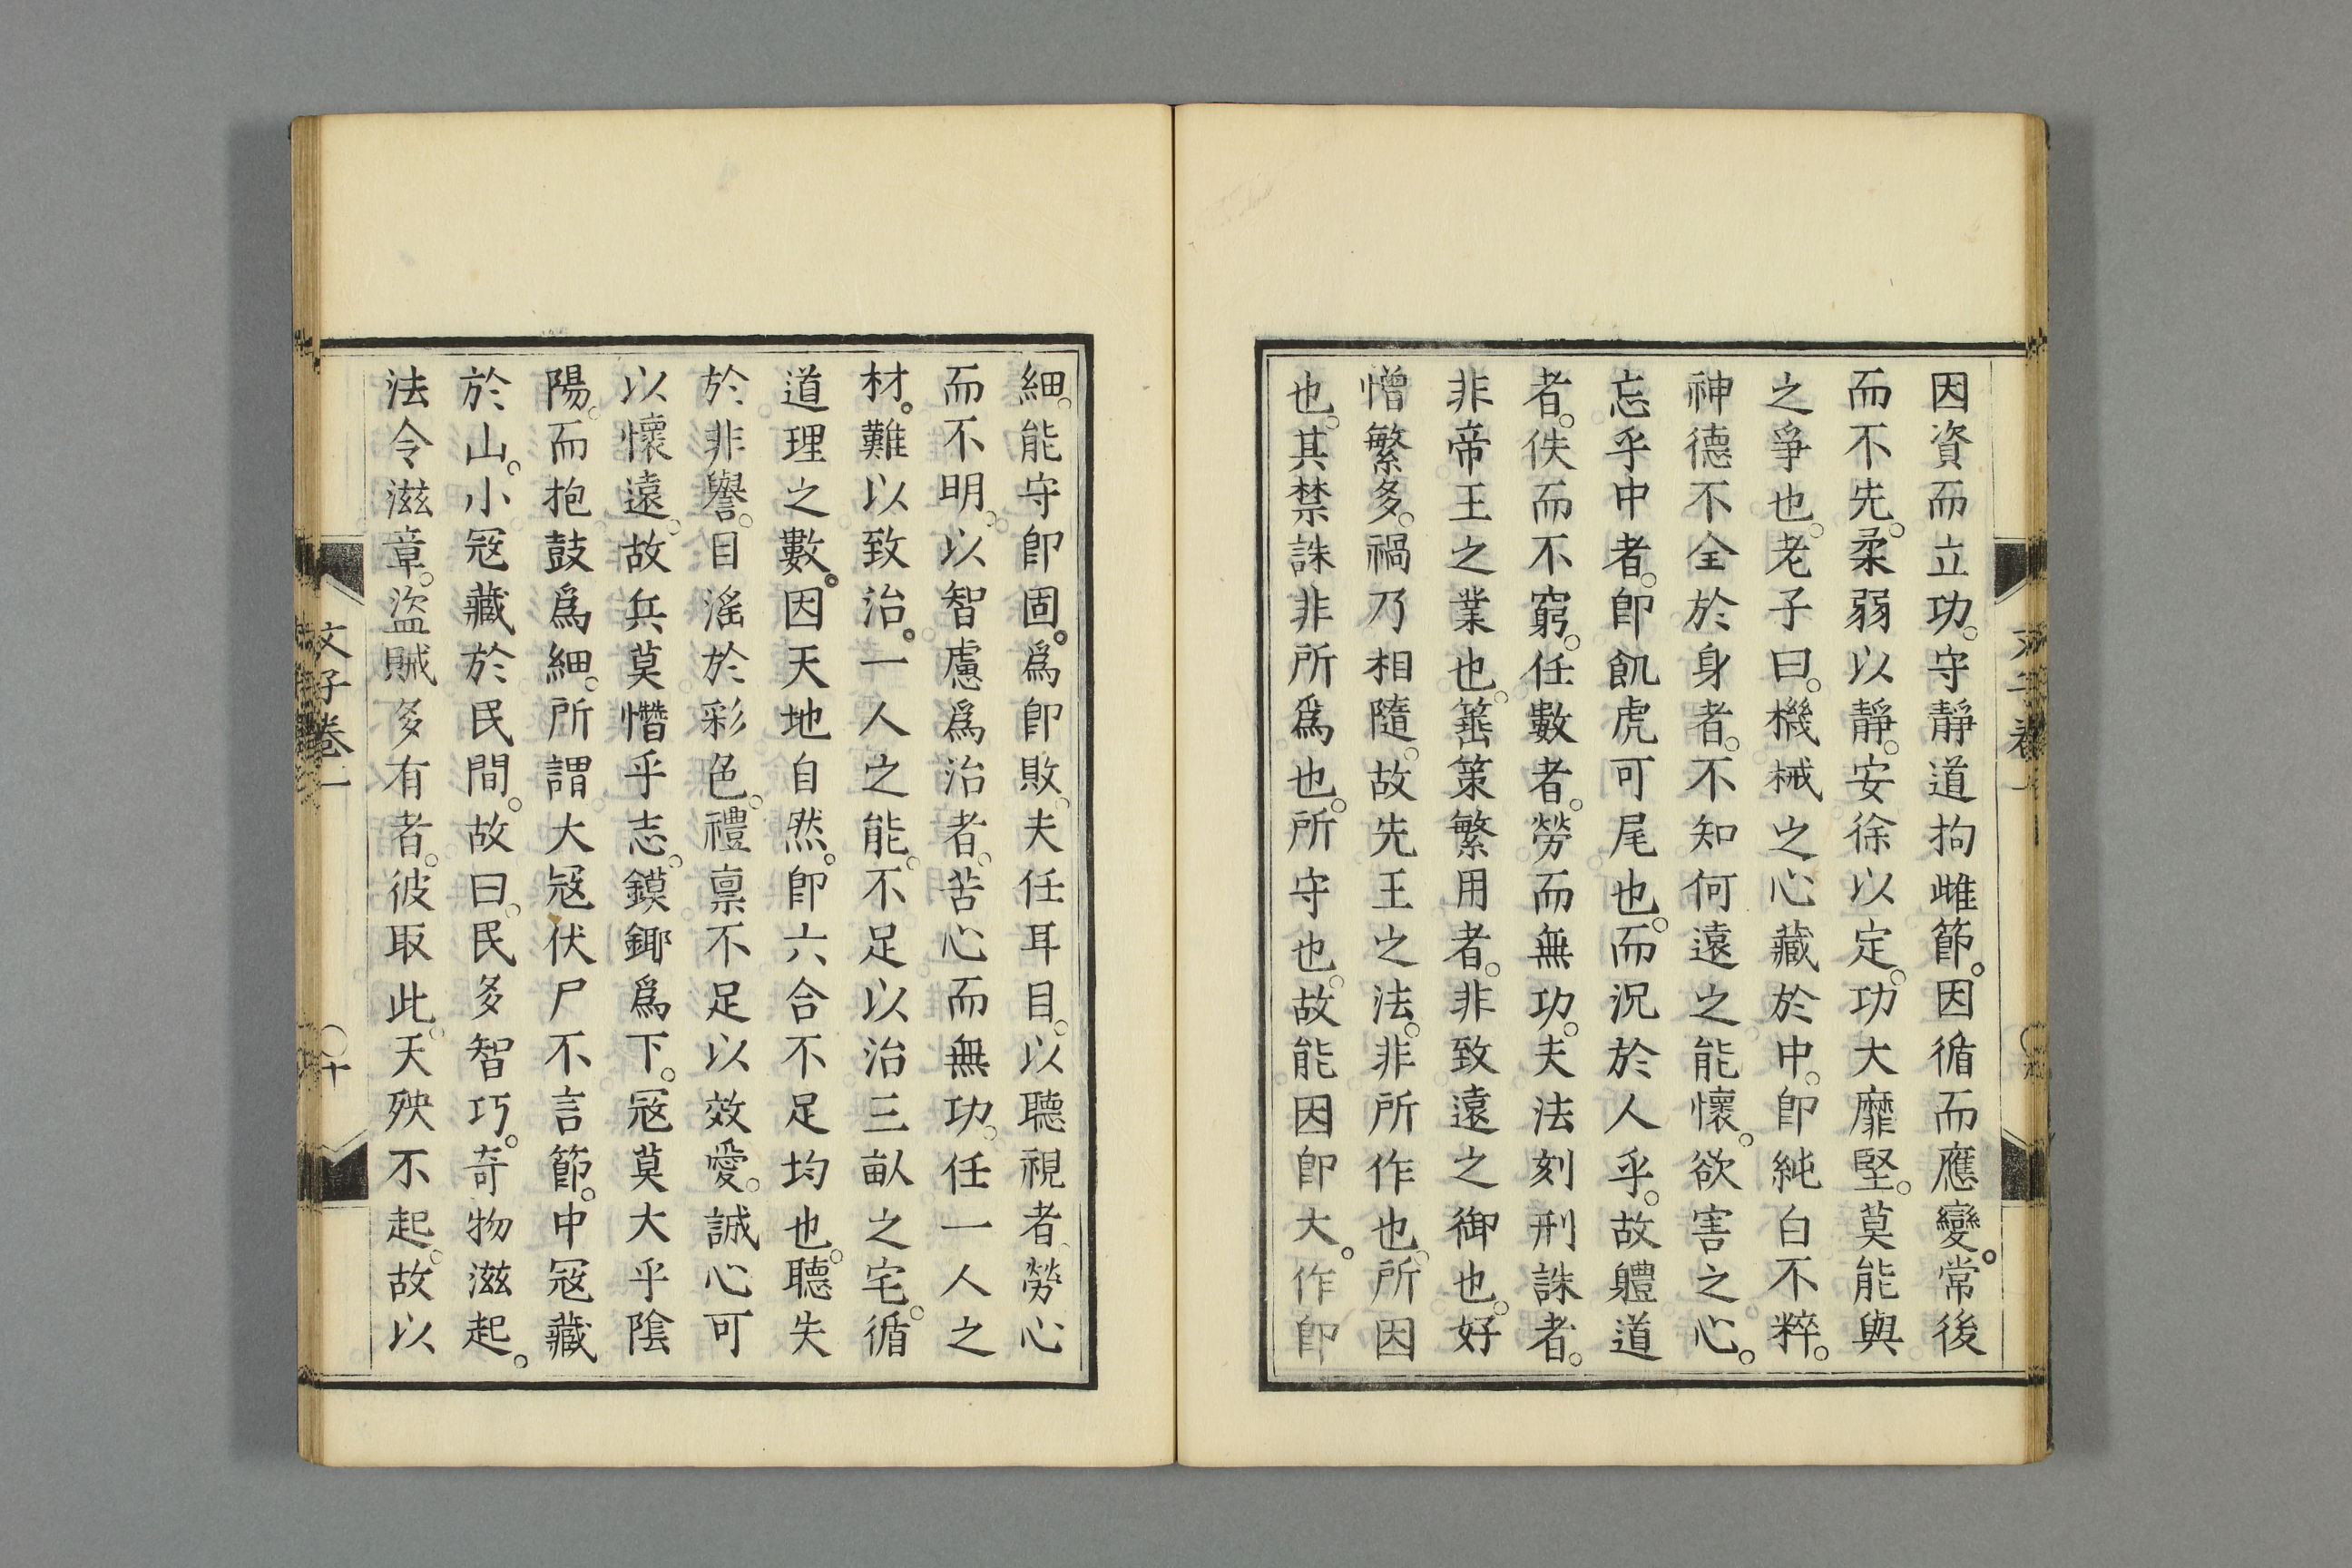 因資而立功。守靜道拘雌節。因循而應變。常後
而不先。柔弱以靜。安徐以定。功大靡堅。莫能與
之爭也。老子曰。機械之心藏於中。卽純白不粹。
神德不全於身者。不知何遠之能懷。欲害之心。
忘乎中者。卽飢虎可尾也。而況於人乎。故軆道
者。佚而不窮。任數者。勞而無功。夫法刻刑誅者。
非帝王之業也。箠策繁用者。非致遠之御也。好
憎繁多。禍乃相隨。故先王之法。非所作也。所因
也。其禁誅非所爲也。所守也。故能因卽大。作卽
細。能守卽固。爲卽敗。夫任耳目。以聽視者。勞心
而不明。以智慮爲治者。苦心而無功。任一人之
材。難以致治。一人之能。不足以治三畝之宅。循
道理之數。因天地自然。卽六合不足均也。聽失
於非譽。目滛於彩色。禮禀不足以效愛。誠心可
以懷遠。故兵莫憯乎志。鏌鎁爲下。寇莫大乎陰
陽。而抱鼓爲細。所謂大寇伏尸不言節。中寇藏
於山。小寇藏於民間。故曰。民多智巧。奇物滋起。
法令滋章。盜賊多有者。彼取此。天殃不起。故以
文子卷一
〇十